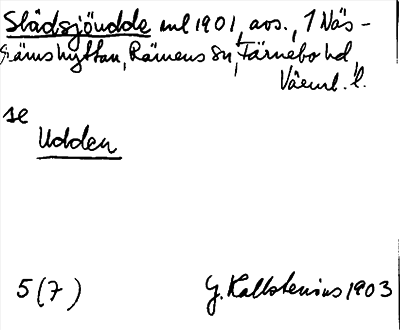 Slädsjöudde ml 1901, avs., 1 Näs-
rämshyttan, Rämens sn, Färnebo hd,
Värml. l.
se
Udden
5(7) G. Kallstenius 1903